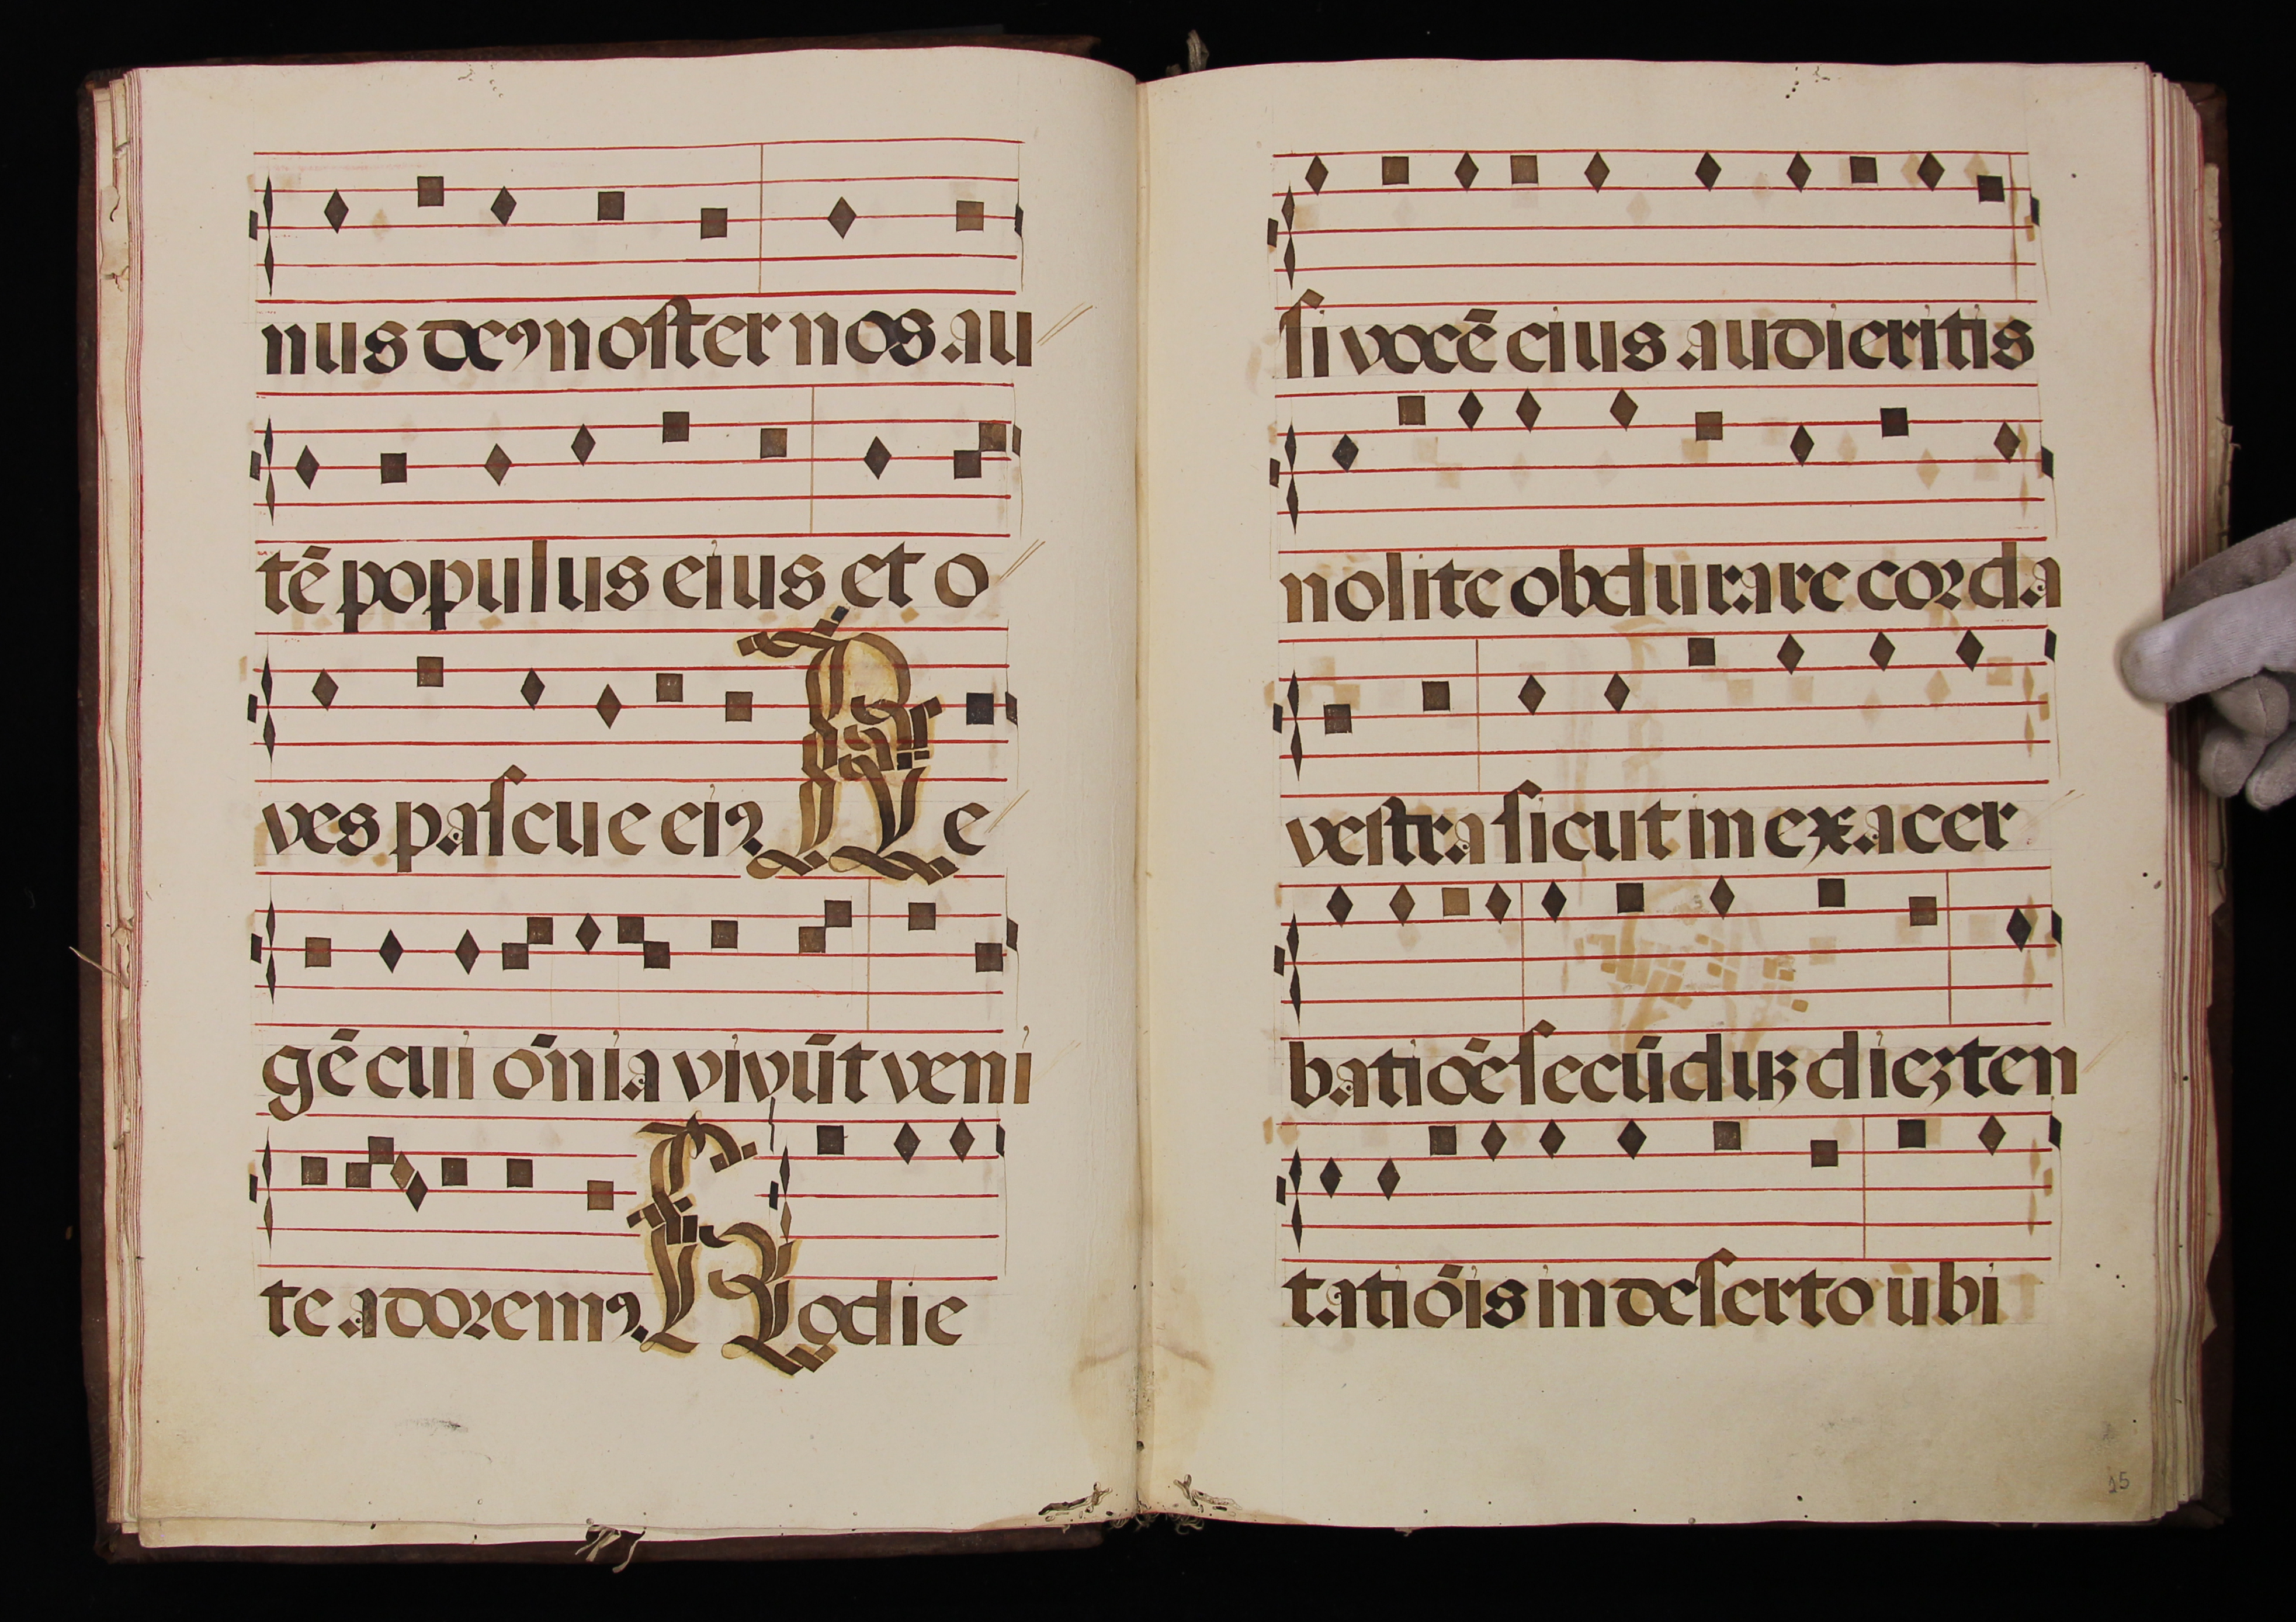 nus deꝰ noſter nos. au
tē populus eius et o
ves paſcue eiꝰ. Re
gē cui om̄ia vivūt veni
te adoremꝰ. Hodie
ſi vocē eius audieritis
nolite obdurare corda
veſtra ſicut in exacer
batiōe ſecūduꝫ dieꝫ ten
tatiōis in deſerto ubi
15